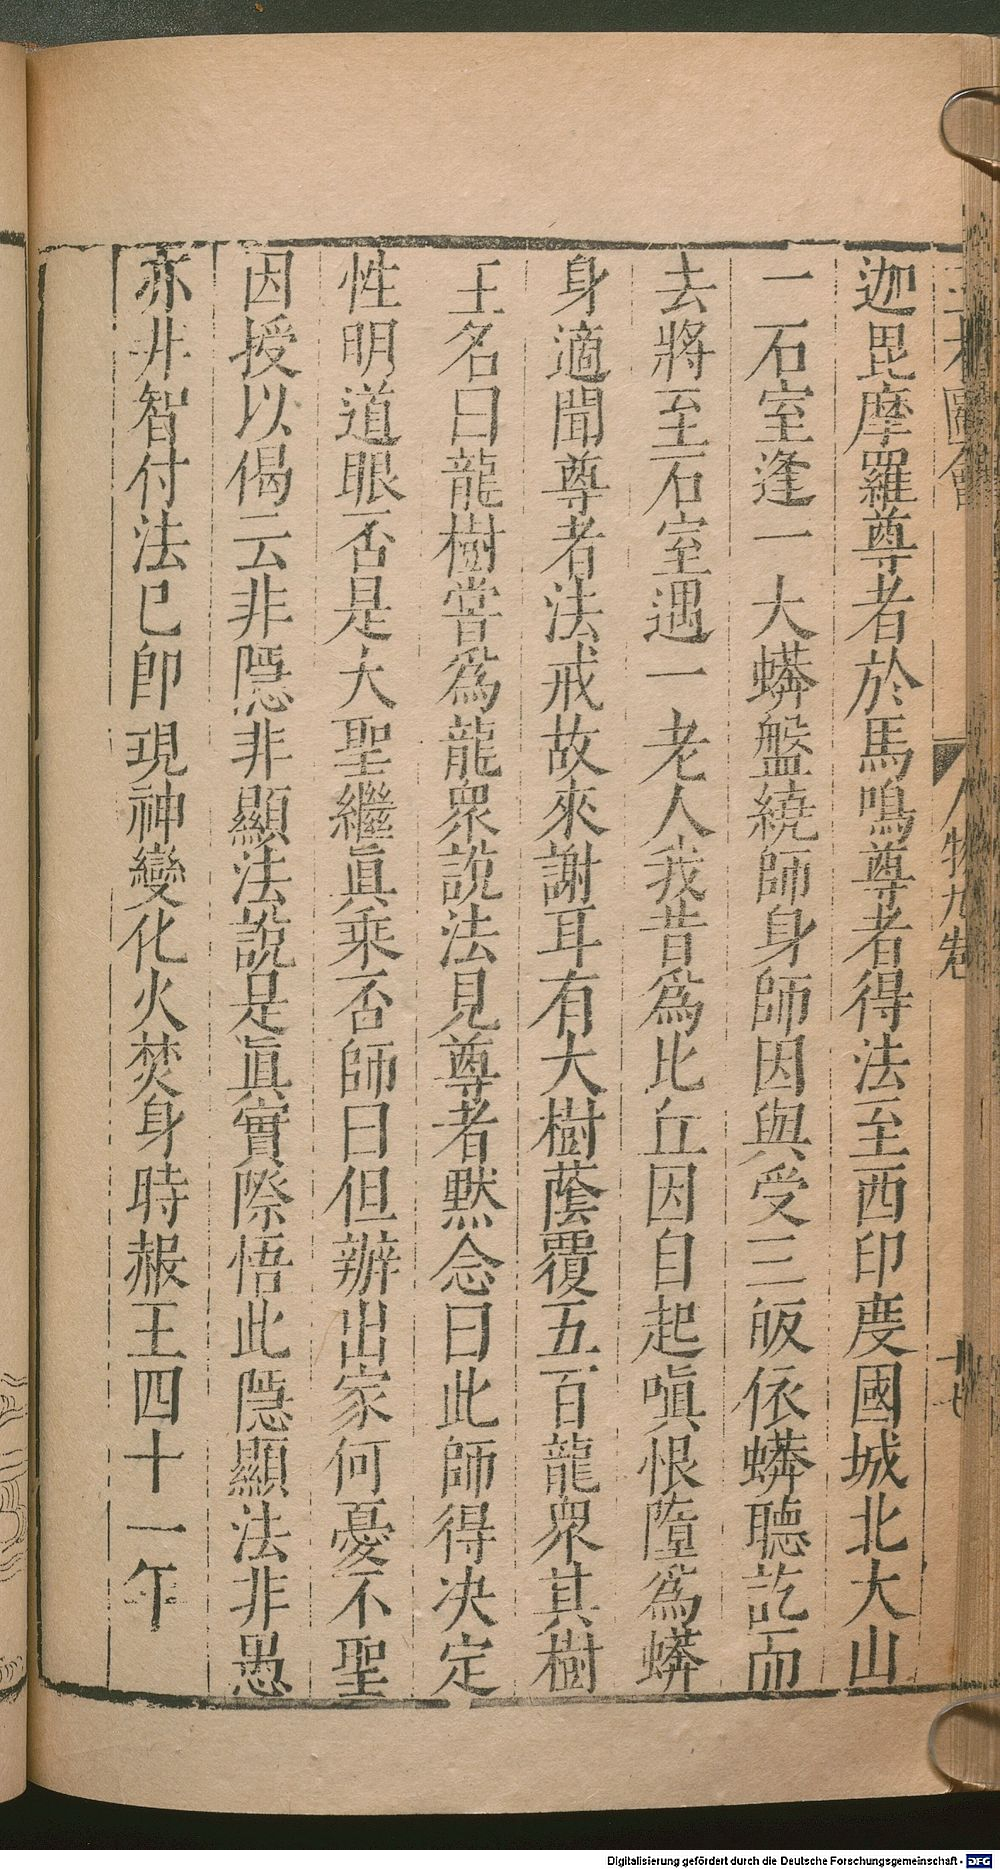 三才圖會
人物九卷
廿七
迦毘摩羅尊者於馬鳴尊者得法至西印度國城北大山
一石室逢一大蟒盤繞師身師因與受三皈依蟒聽訖而
去將至石室遇一老人我昔為比丘因自起嗔恨墮為蟒
身適聞尊者法戒故來謝耳有大樹蔭覆五百龍衆其樹
王名曰龍樹甞為龍衆說法見尊者黙念曰此師得决定
性明道眼否是大聖繼眞乘否師曰但辦出家何憂不聖
因授以偈云非隱非顯法說是眞實際悟此隱顯法非愚
亦非智付法巳卽現神變化火焚身時赧王四十一年
Digitalisierung gefördert durch die Deutsche Forschungsgemeinschaft - DFG